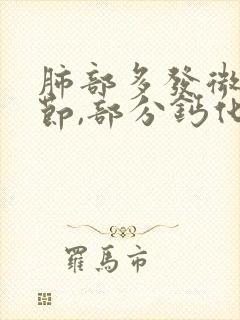 肺部多發微
節,部分鈣化
羅馬市